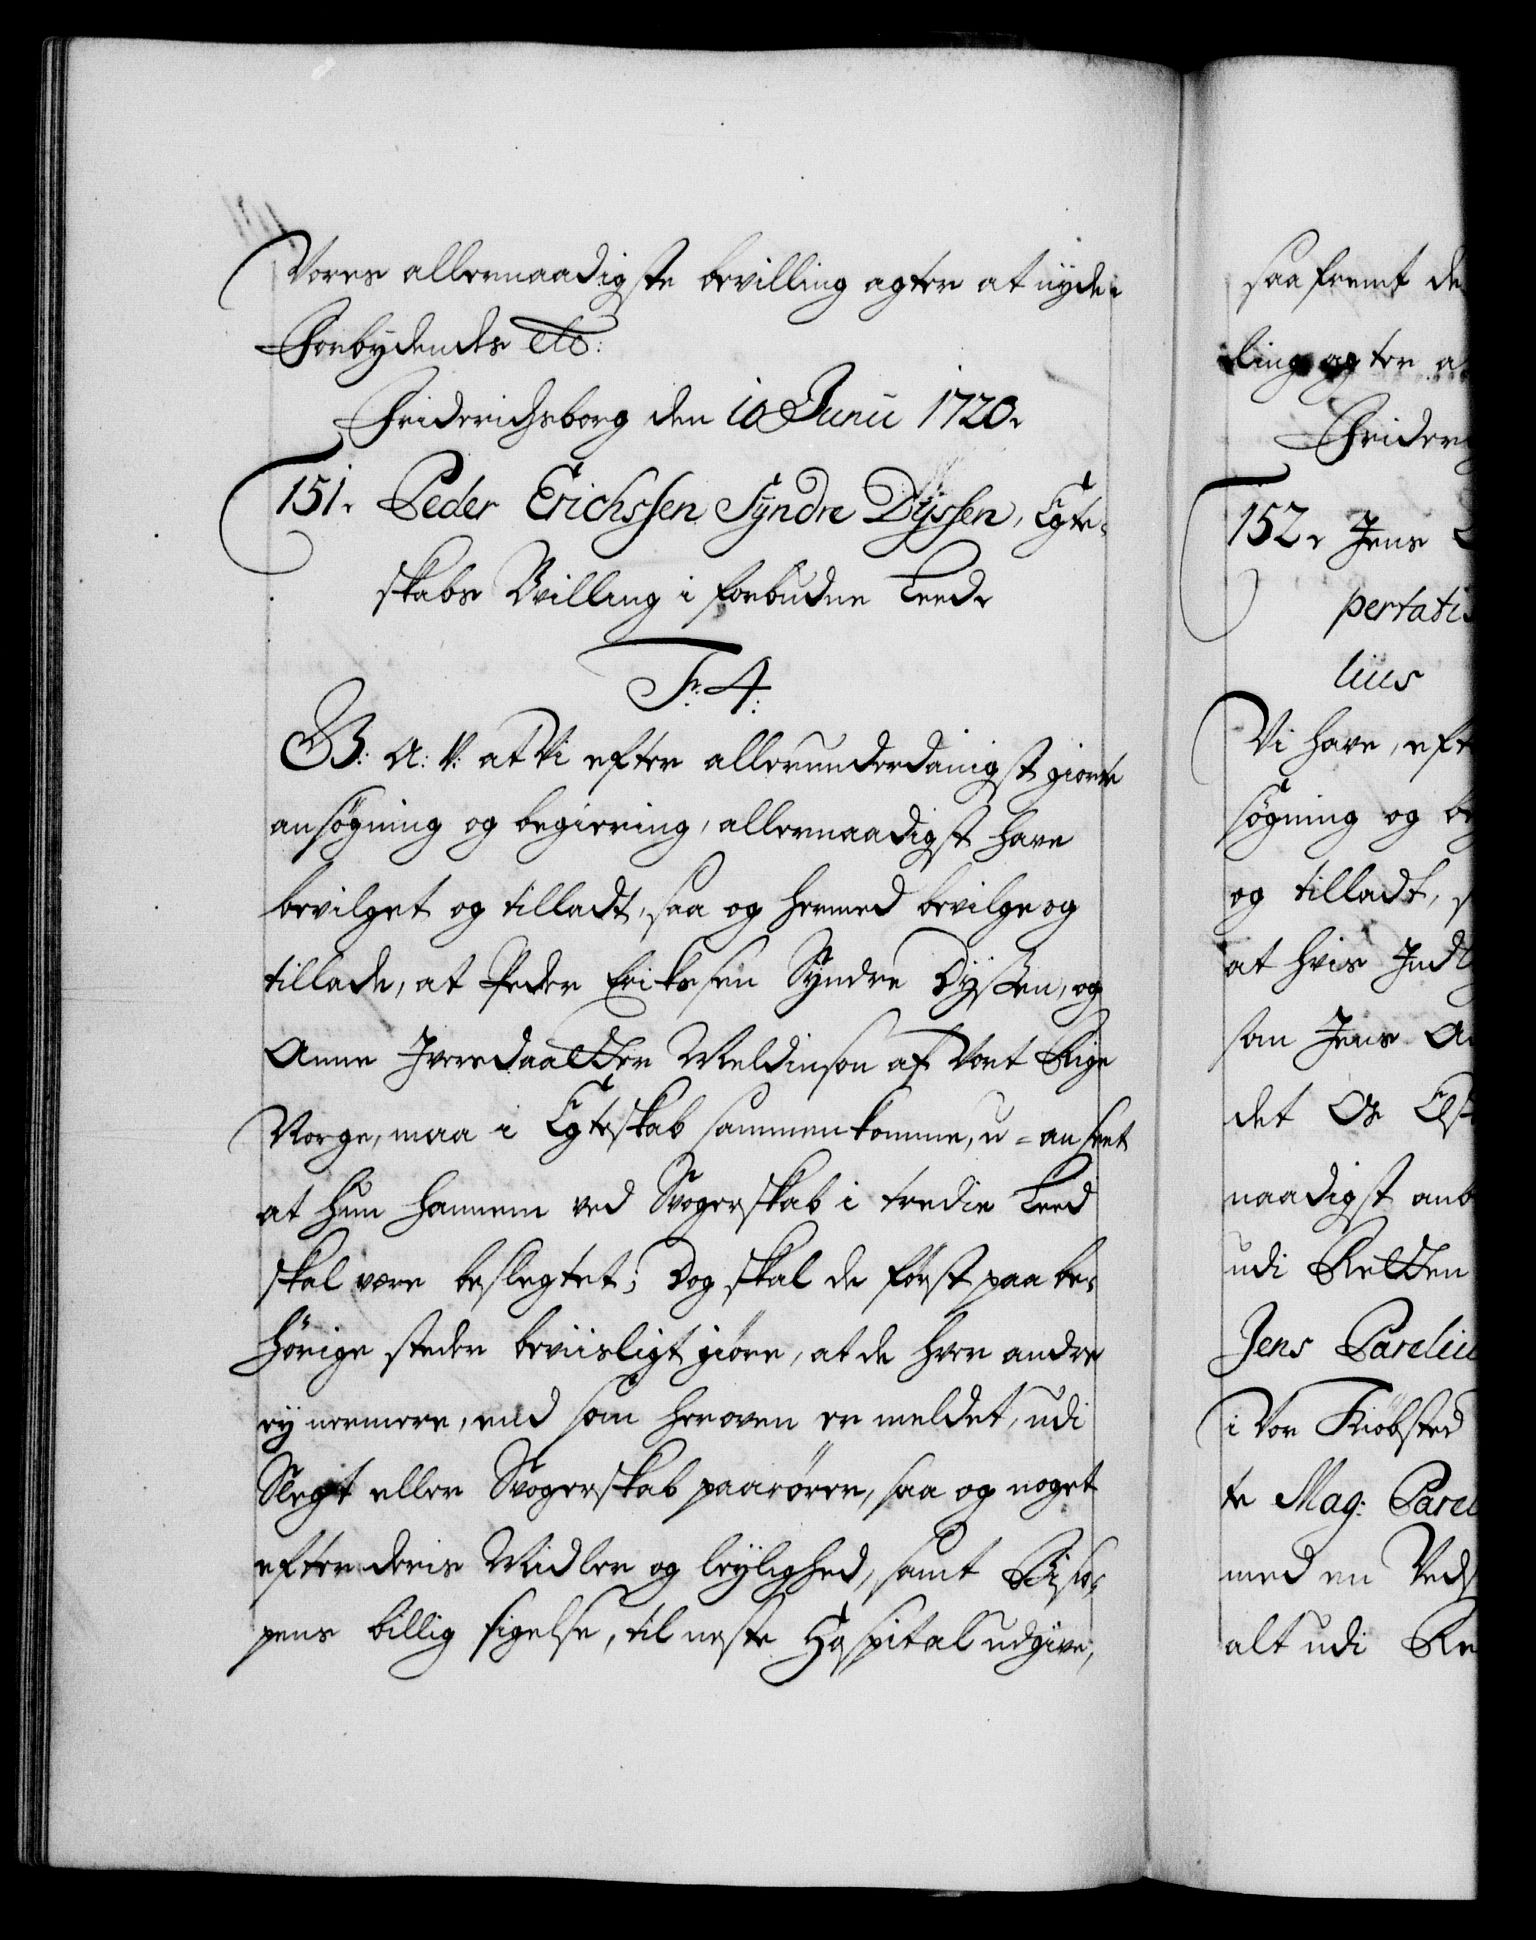 Vores allernaadigste bevilling agter at nyde.
Forbydendes etc:
Friderichsborg den 10 Junii 1720.
151. Peder Erichssen Syndre Dyssen, Egte-
skabs Bevilling i forbudne Leed.
Fr. 4.
G: A: V: at Vi efter allerunderdanigst giorte
ansøgning og begiering, allernaadigst have
bevilget og tilladt, saa og hermed bevilge og
tillade, at Peder Eriksen Syndre Dyssen, og
Anne Iversdaatter Meldinson af Vort Rige
Norge, maa i Egteskab sammenkomme, u-anseet
at hun hannem ved Svogerskab i tredie Leed
skal være beslegtet; Dog skal de først paa be-
hørige steder beviisligt giøre, at de hver andre
ey nermere, end som heroven er meldet, udi
Slegt eller Svogerskab paarører, saa og noget
efter deris Midler og leylighed, samt Bisko-
pens billig sigelse, til neste Hospital udgive,
saafremt de
ling agter a
Frider
152. Jens
pertati
lius
Vi have, eft
søgning og be
og tilladt, s
at hvis Indl
som Jens A
det Os
naadigst anb
udi Retten
Jens Pareliu
i Vor Kiøbsted
te Mag: Parel
med en Veds
alt udi Re